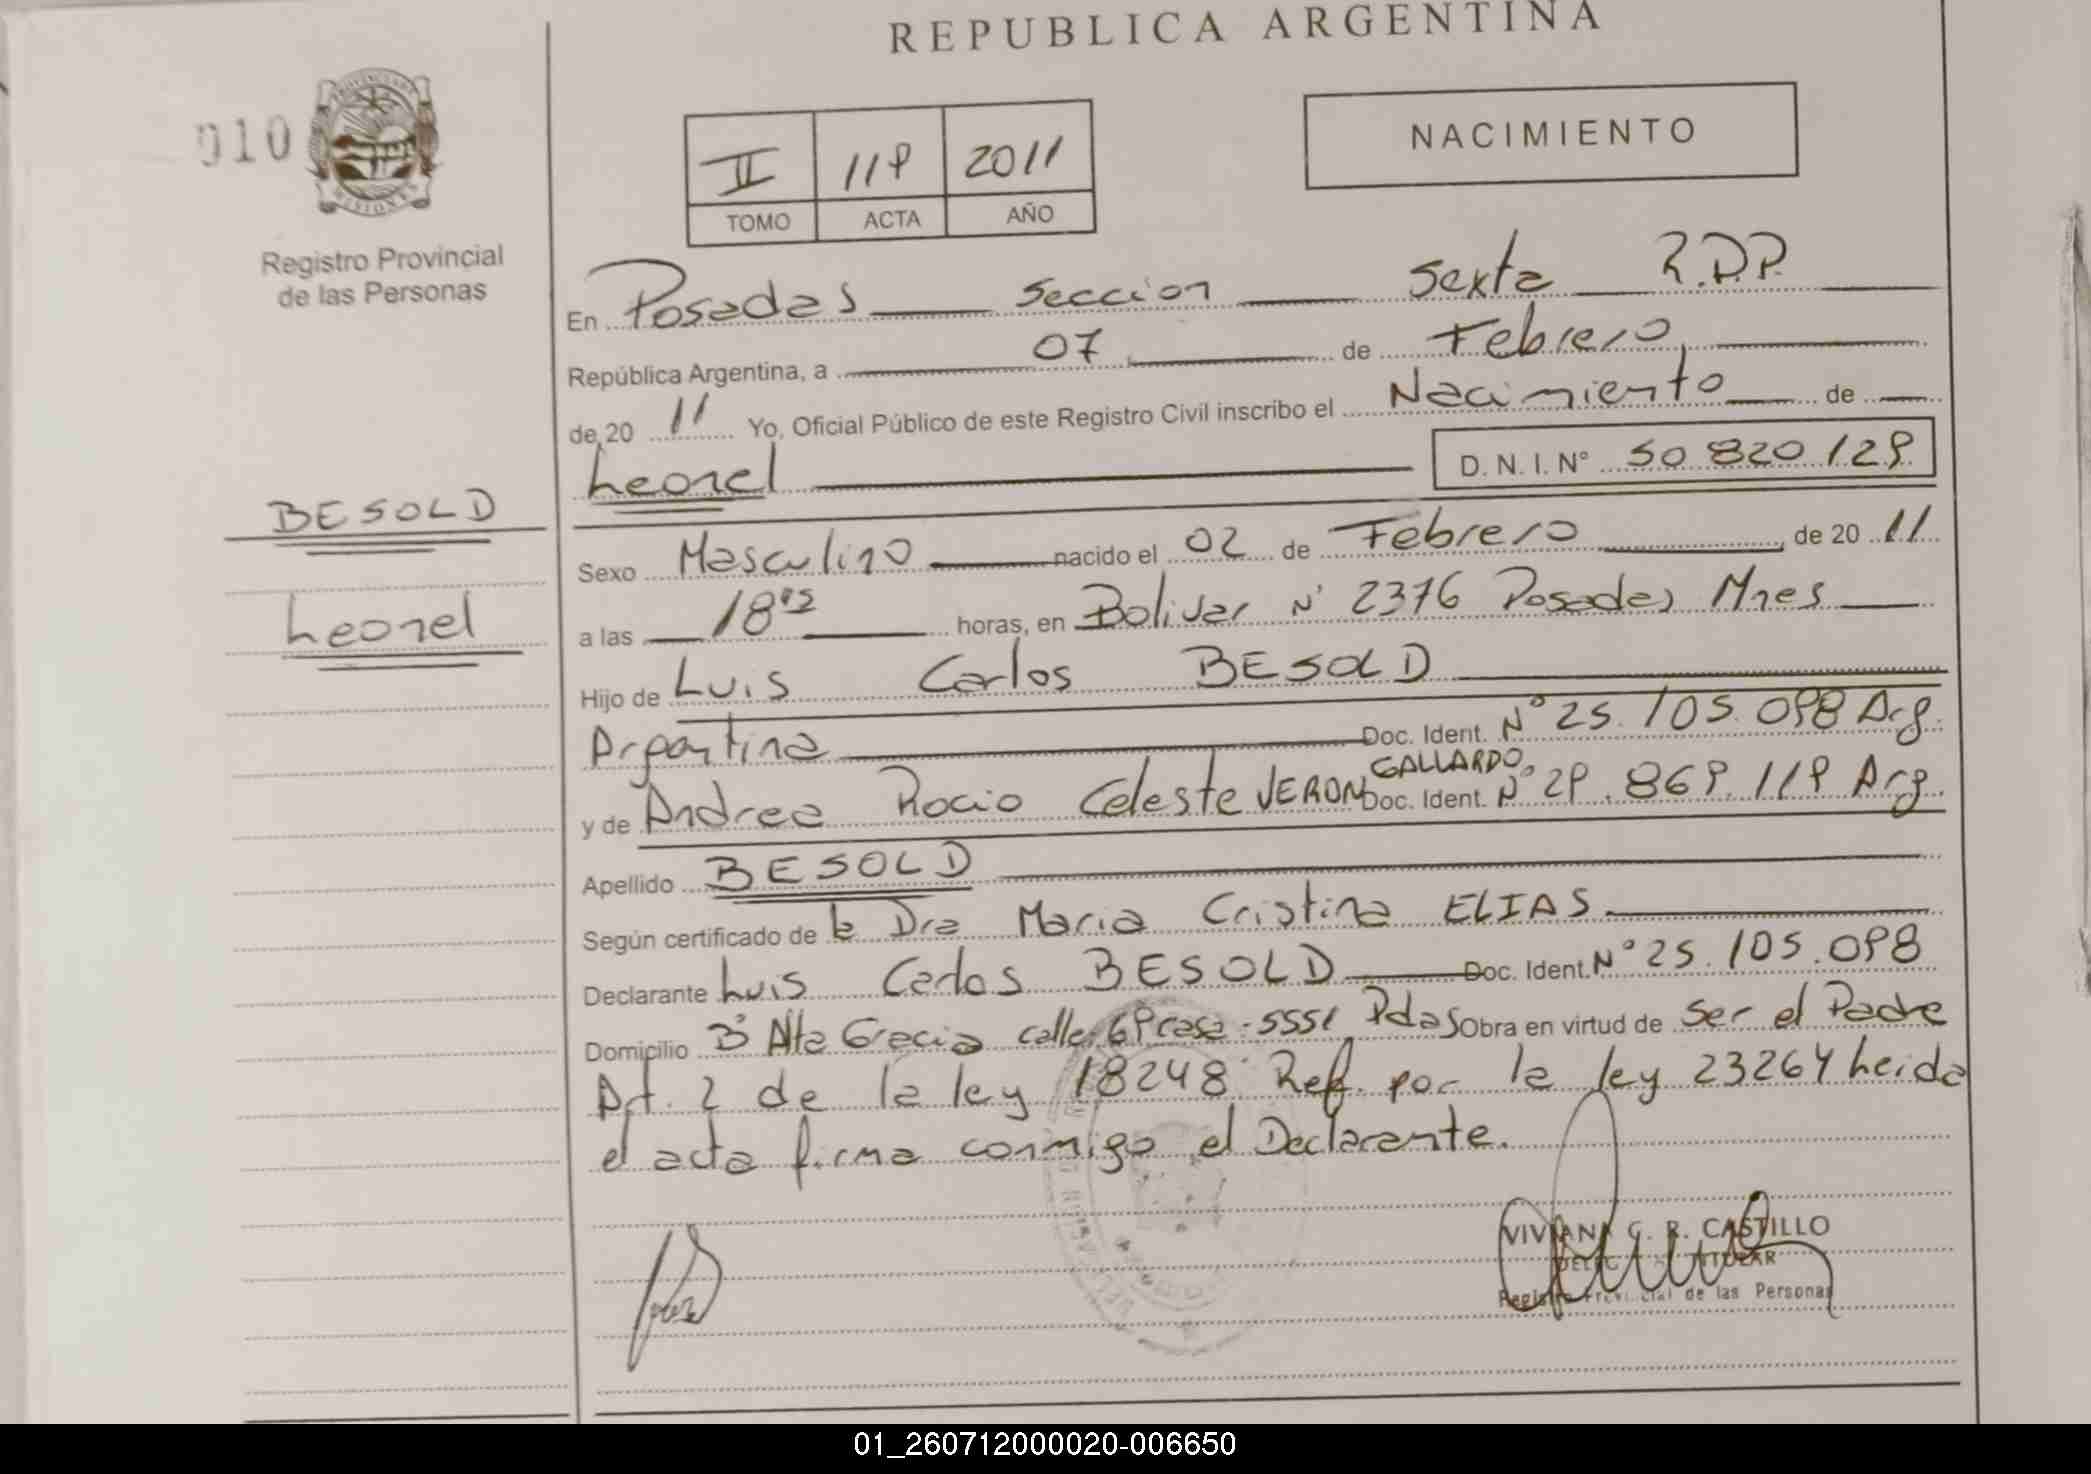 REPUBLICA ARGENTINA
010
NACIMIENTO
II 119 2011
TOMO ACTA AÑO
Registro Provincial
de las Personas
En Posadas Seccion Sexta R.P.P.
República Argentina, a 07 de Febrero
de 20 11 Yo, Oficial Público de este Registro Civil inscribo el Nacimiento de
Leonel D. N. I. N° 50 820 129
BESOLD
Leonel
Sexo Masculino nacido el 02 de Febrero de 20 11
a las 18 horas, en Bolivar N° 2376 Posadas Mnes
Hijo de Luis Carlos BESOLD
Argentina Doc. Ident. N° 25.105.098 Arg.
GALLARDO
y de Andrea Rocio Celeste VERON Doc. Ident. N° 29.869.119 Arg.
Apellido BESOLD
Según certificado de la Dra Maria Cristina ELIAS
Declarante Luis Carlos BESOLD Doc. Ident. N° 25.105.098
Domicilio B° Alta Gracia calle 69 casa 5551 Pdas Obra en virtud de ser el Padre
Art. 2 de la ley 18248 Ref. por la ley 23264 Leida
el acta firma conmigo el Declarante.
VIVIANA G. R. CASTILLO
TITULAR
Registro Provincial de las Personas
01_260712000020-006650